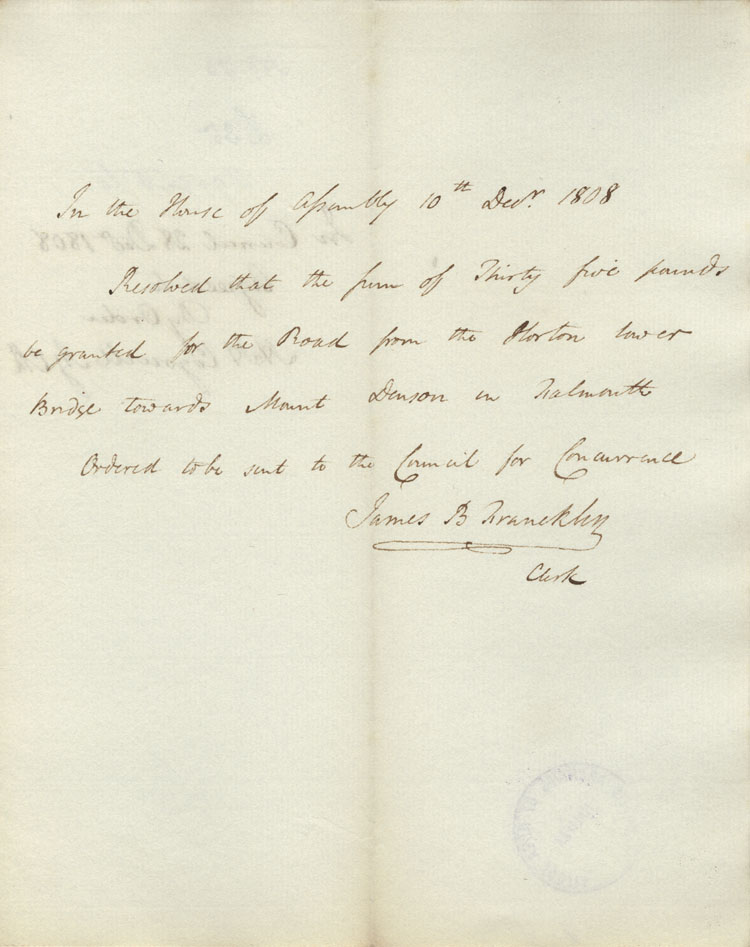 In the House of Assembly 10th Decr. 1808
Resolved that the sum of Thirty five pounds
be granted for the Road from the Horton lower
Bridge towards Mount Denson in Falmouth
Ordered to be sent to the Council for Concurrence
James B Franckly
Clerk
In Council 28 Decr 1808